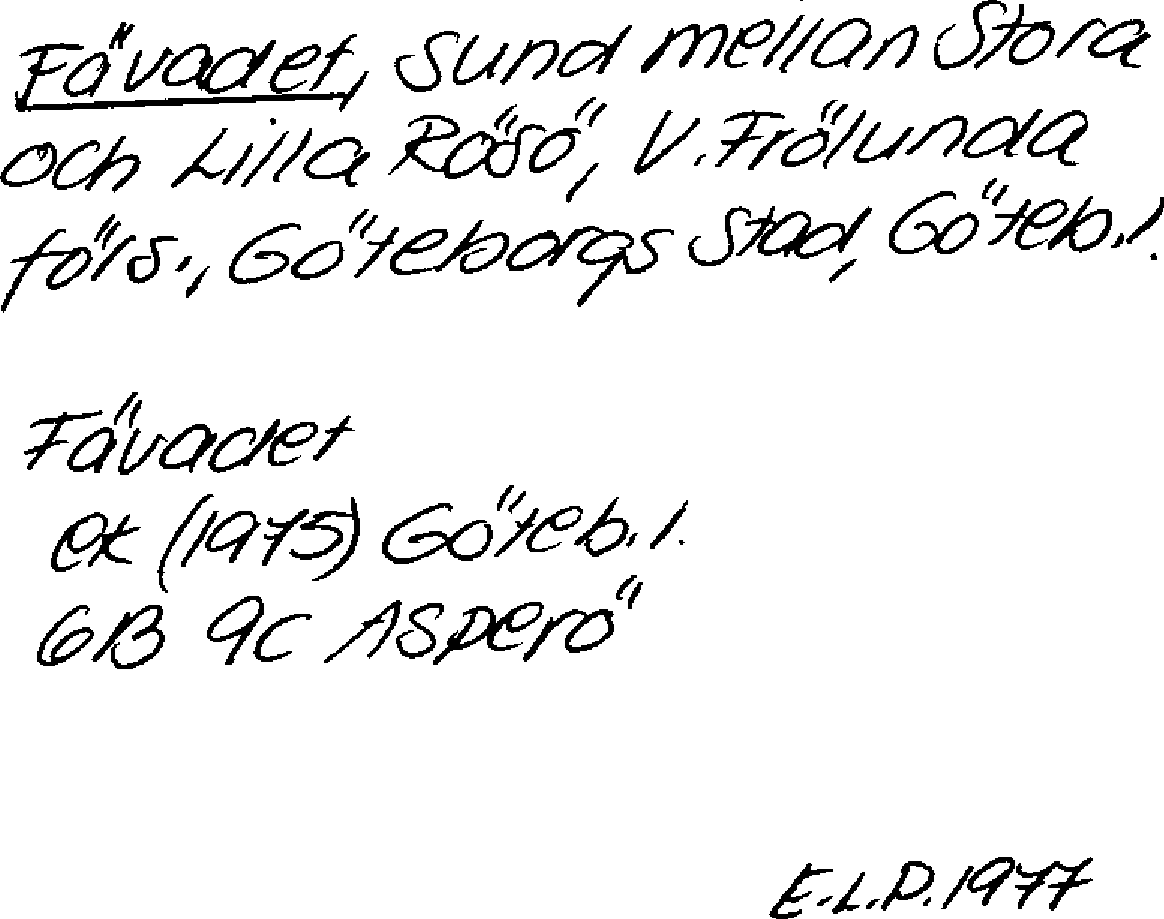 Fävadet, sund mellan Stora
och Lilla Rösö, V. Frölunda
förs., Göteborgs stad, Göteb.l.
Fävadet
ek (1975) Göteb.l.
6B 9c Asperö
E.L.P. 1977